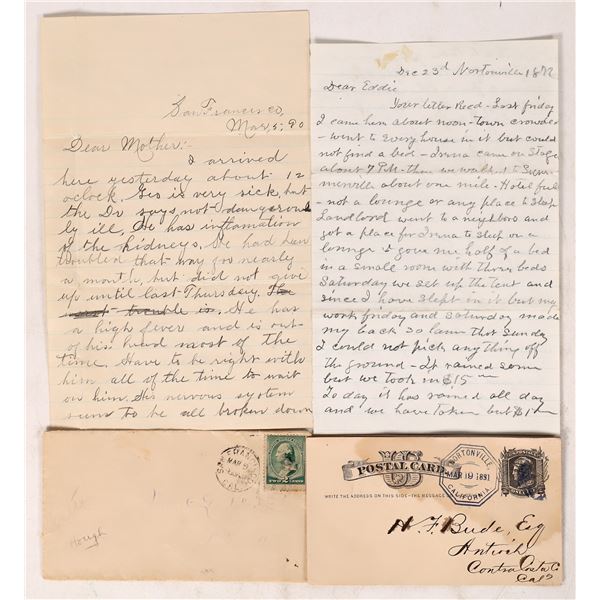 San Francisco,
Mar, 5, 90
Dear Mother:-
I arrived
here yesterday about 12
oclock. Geo is very sick, but
the Dr says not dangerous
ly ill. He has inflamation
of the Kidneys. He had been
troubled that way for nearly
a month, but did not give
up until last Thursday. The
worst trouble is. He has
a high fever and is out
of his head most of the
time. Have to be right with
him all of the time to wait
on him. His nervous system
seem to be all broken down
Dec 23d Nortonville 1877
Dear Eddie
Your letter Recd - Last friday
I came him about noon - town crowded
- went to Every house in it but could
not find a bed - Irina came on Stage
about 7 PM - then we walked to Sum-
merville about one mile - Hotel full
- not a lounge or any place to Sleep
Landlord went to a neighbors and
got a place for Irina to Sleep on a
lounge & gave me half of a bed
in a small room with three beds
Saturday we set up the tent and
since I have Slept in it but my
work friday and Saturday made
my back So lame that Sunday
I could not pick any thing off
the ground - It rained some
but we took in $15
To day it has rained all day
and we have taken but $1
MAR
CAL
TWO CENTS
Hough
POSTAL CARD
WRITE THE ADDRESS ON THIS SIDE - THE MESSAGE
NORTONVILLE
MAR 19 1881
CALIFORNIA
H. F. Bude, Esq
Antioch
Contra Costa Co
Cal